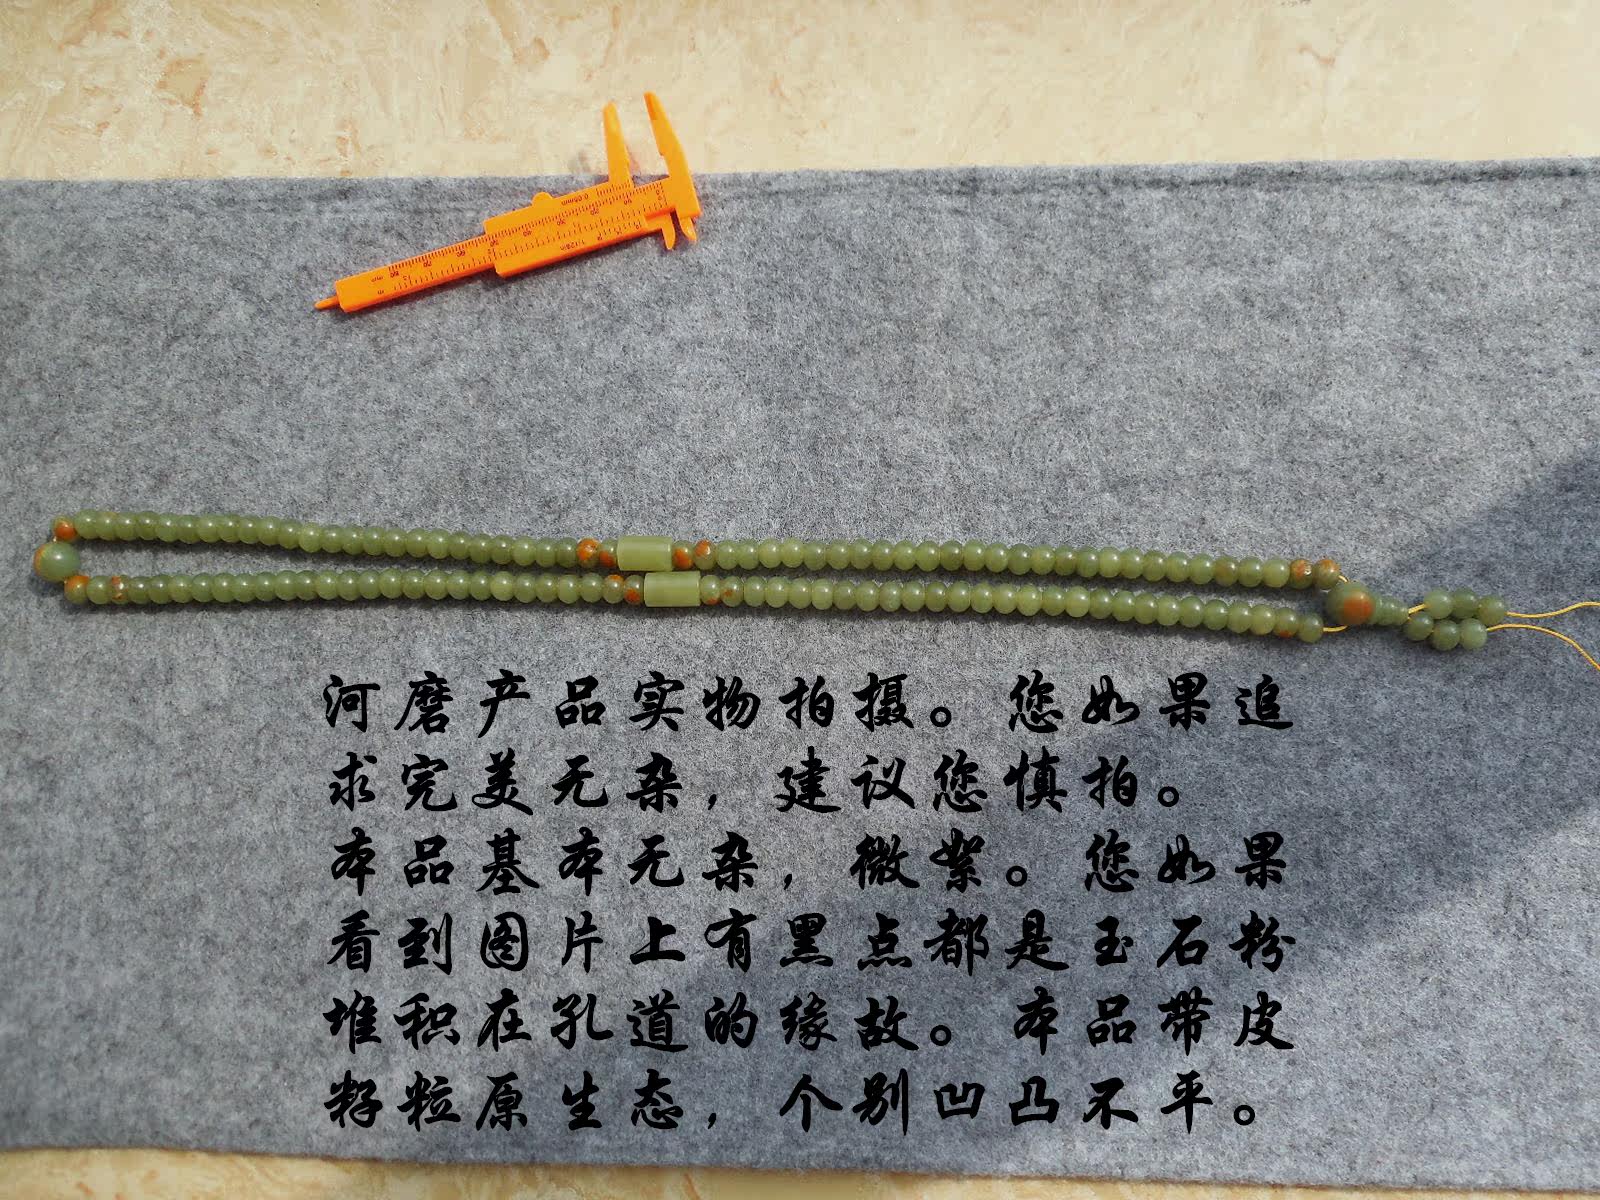 河磨产品实物拍摄。您如果追
求完美无杂，建议您慎拍。
本品基本无杂，微絮。您如果
看到图片上有黑点都是玉石粉
堆积在孔道的缘故。本品带皮
籽粒原生态，个别凹凸不平。
0.05mm
1/128in